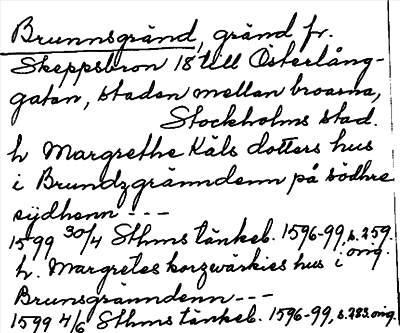 Brunnsgränd, gränd fr.
Skeppsbron 18 till Österlång-
gatan, staden mellan broarna,
Stockholms stad.
h Margrethe Käls dotters hus
i Brundzgränndenn på södhre
sijdhenn - - -
1599 30/4 Sthms tänkeb. 1596-99, s. 259.
orig.
h. Margretes korgwärkies hus i
Brunsgränndenn - - -
1599 4/6 Sthms tänkeb. 1596-99, s. 283. orig.